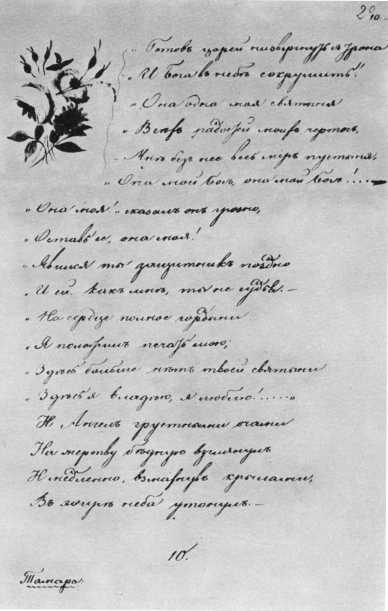 „Готовъ царей низвергнуть я трона
„И Бога въ небѣ сокрушить!
„Она одна моя святыня
„Всѣхъ радостей моихъ чертогъ,
„Мнѣ безъ нее весь міръ пустыня,
„Она мой Богъ, она мой Богъ!....
„Она моя! сказалъ онъ грозно,
„Оставь ее, она моя!
„Явился ты защитникъ поздно
„И ей, какъ мнѣ, ты не судья.—
„На сердце полное гордыни
„Я положилъ печать мою,
„Здѣсь больше нѣтъ твоей святыни
„Здѣсь я владѣю, и люблю!.....“
И Ангелъ грустными очами
На жертву бѣдную взглянулъ
И медленно, взмахнувъ крылами,
Въ эѳирѣ неба утонулъ.—
10.
Тамара.